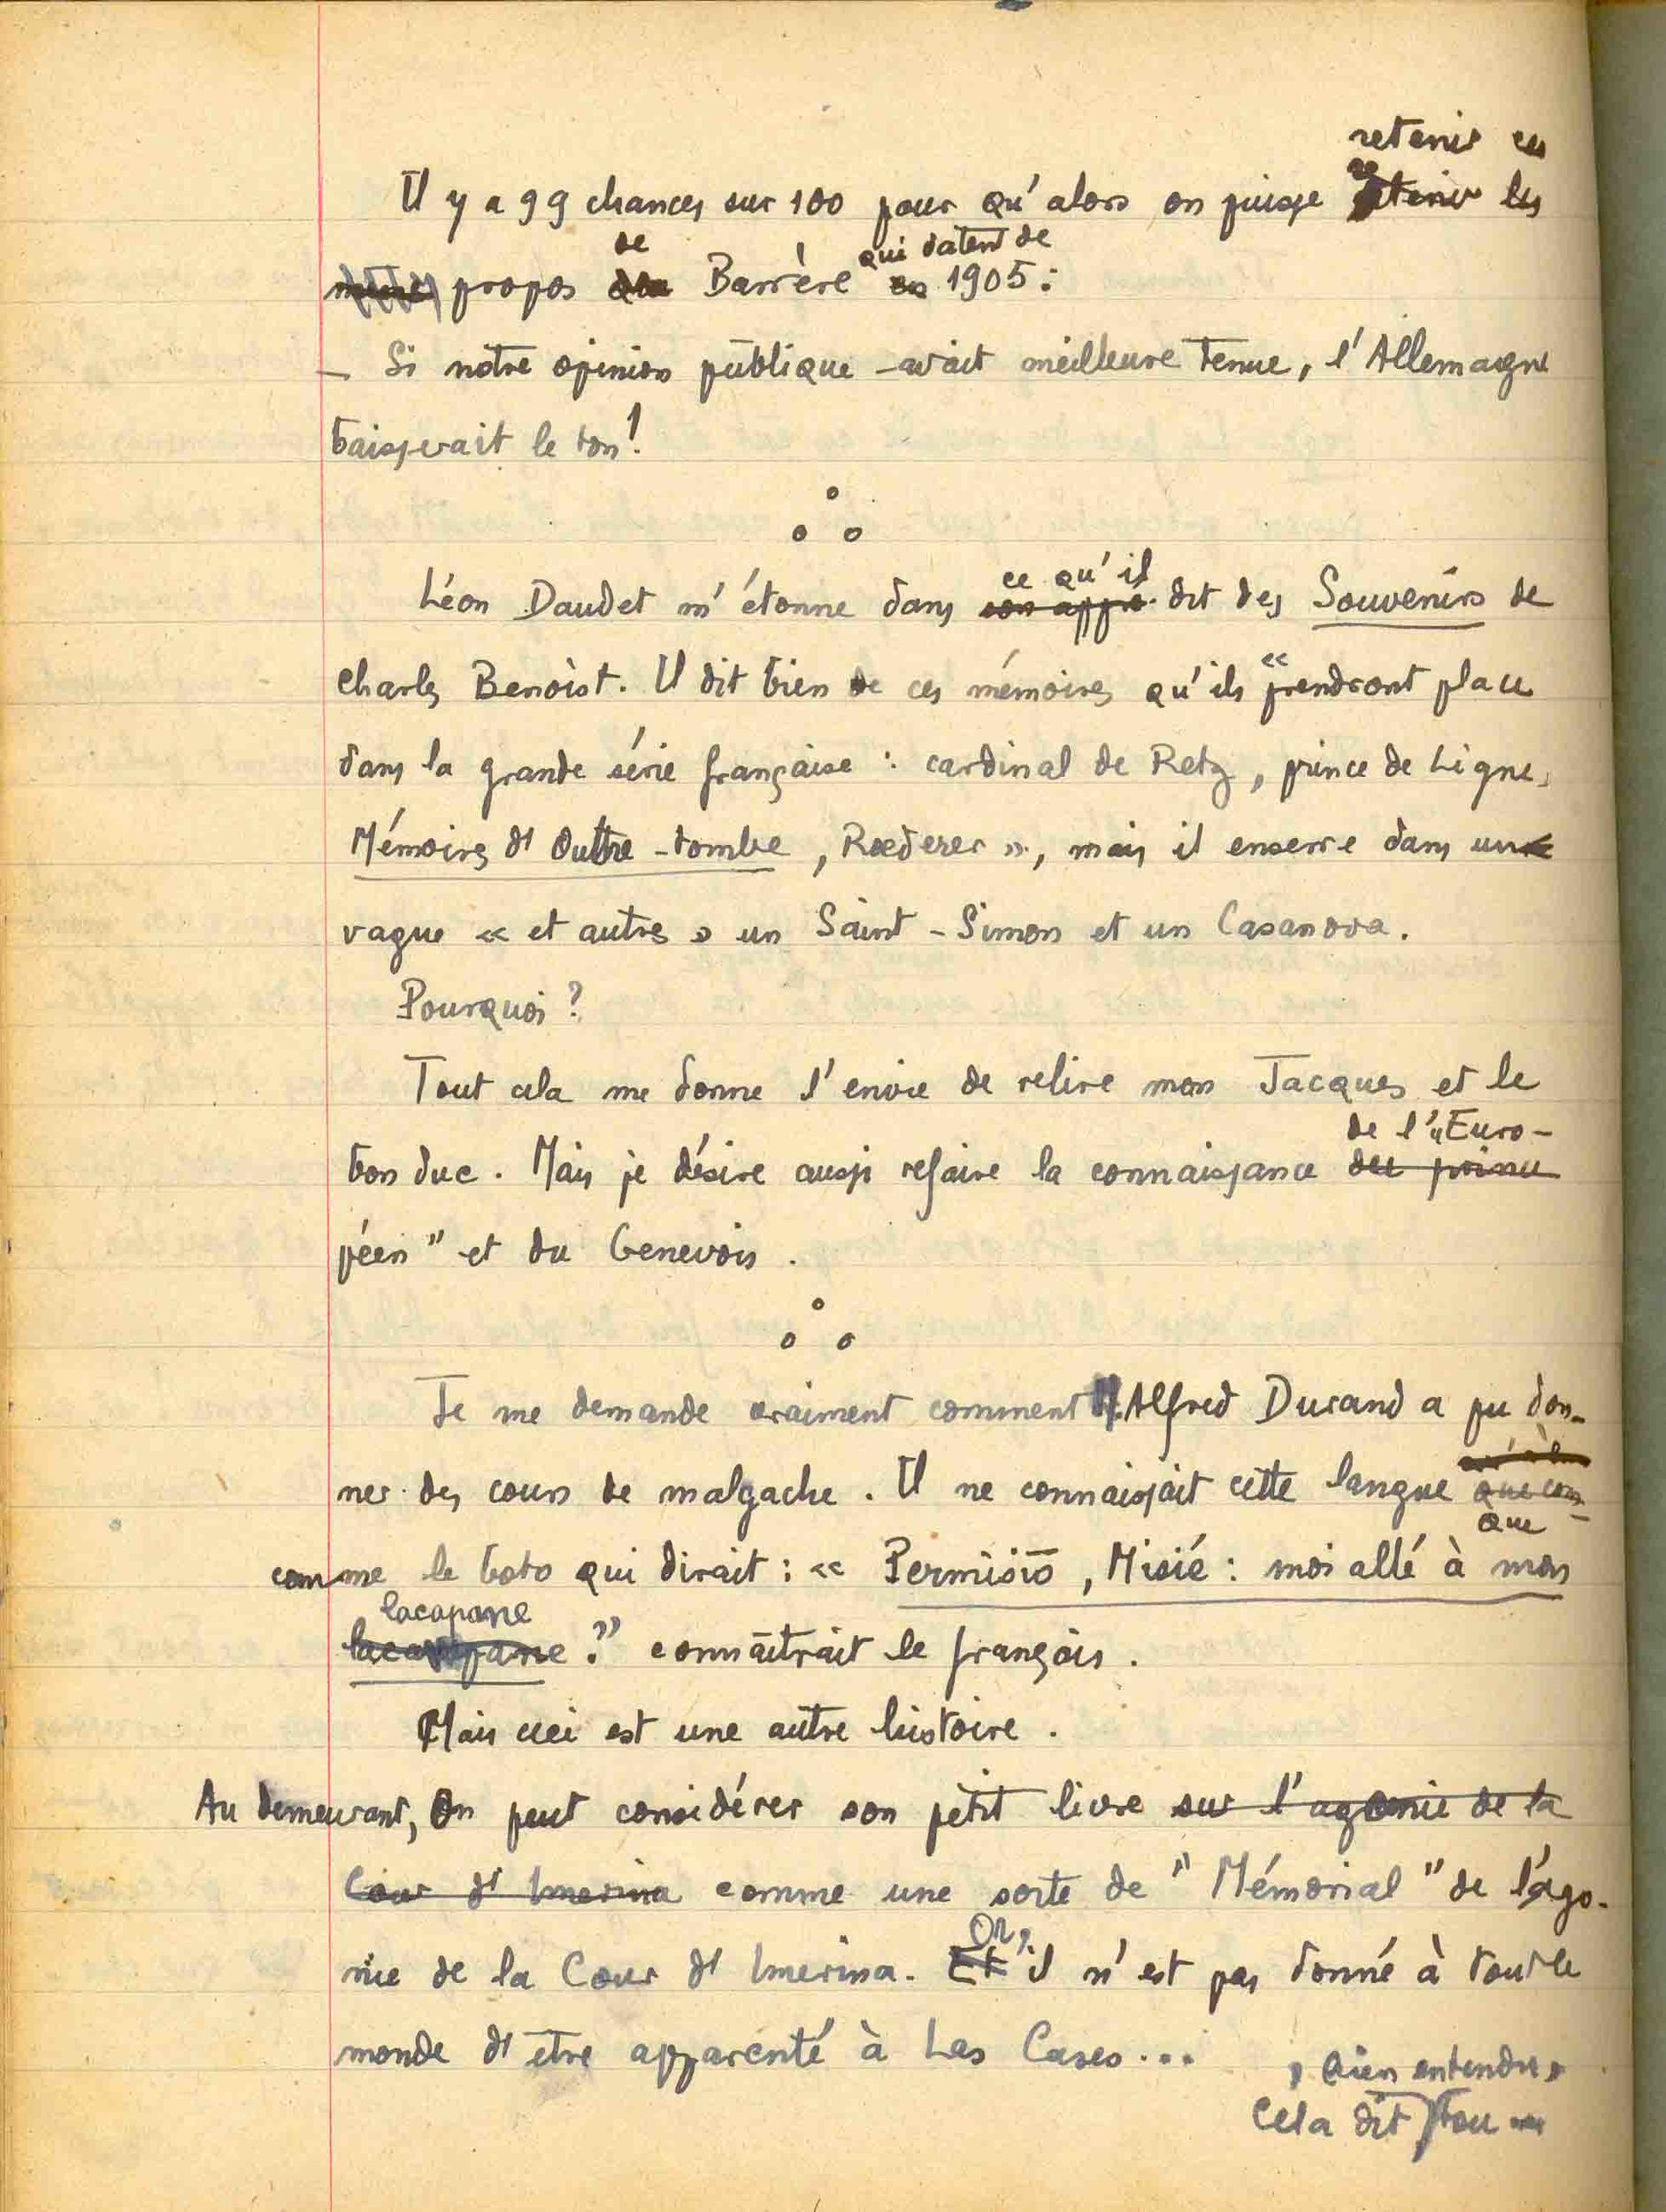 retenir ces
Il y a 99 chances sur 100 pour qu'alors on puisse retenir les
de qui datent de
propos Barrère en 1905 :
— Si notre opinion publique avait meilleure tenue, l'Allemagne
baisserait le ton !
ce qu'il
Léon Daudet m'étonne dans son appré- dit des Souvenirs de
Charles Benoist. Il dit bien de ces mémoires qu'ils « prendront place
dans la grande série française : cardinal de Retz, prince de Ligne,
Mémoires d'Outre-tombe, Rœderer », mais il enserre dans un
vague « et autres » un Saint-Simon et un Casanova.
Pourquoi ?
Tout cela me donne l'envie de relire mon Jacques et le
de l'"Euro-
bon duc. Mais je désire aussi refaire la connaissance du prince
péen" et du Genevois.
Je me demande vraiment comment M. Alfred Durand a pu don-
ner des cours de malgache. Il ne connaissait cette langue que com-
que
comme le boto qui dirait : « Permisió, Misié : moi allé à mon
lacapane
?" connaîtrait le français.
Mais ceci est une autre histoire.
Au demeurant, On peut considérer son petit livre sur l'agonie de la
Cour d'Imerina comme une sorte de "Mémorial" de l'ago-
Or,
nie de la Cour d'Imerina. Et il n'est pas donné à tout le
monde d'etre apparenté à Las Cases...
, bien entendu,
Cela dit